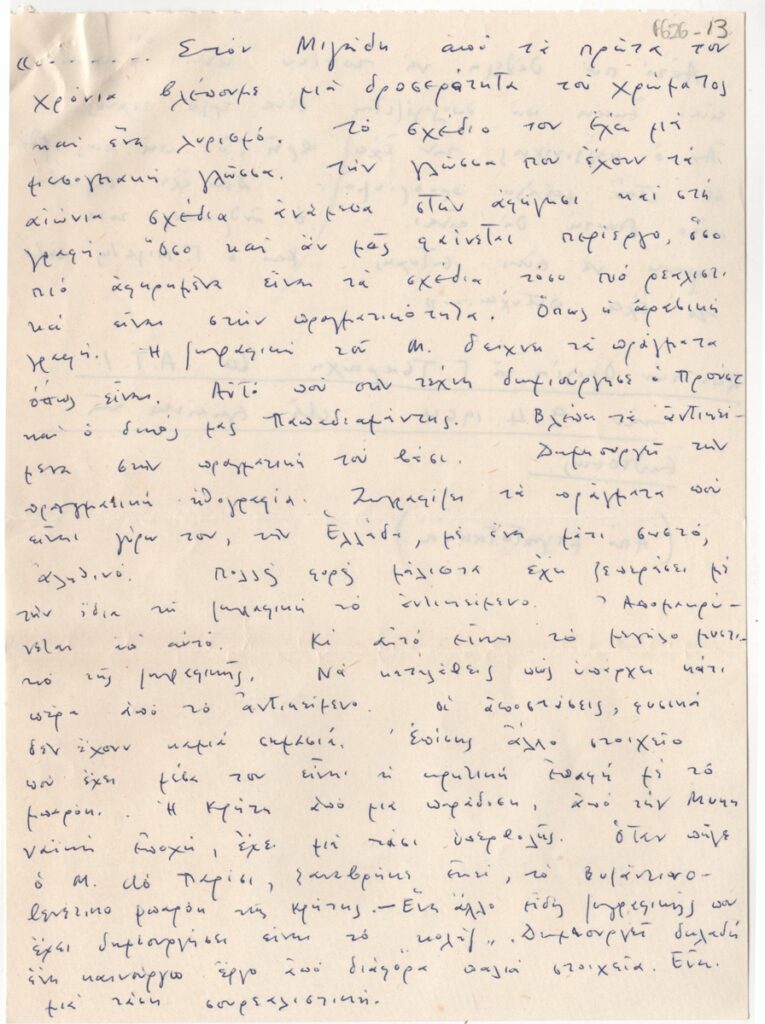 F626-13
«......... Στόν Μιγάδη ἀπό τὰ πρῶτα του
χρόνια βλέπουμε μιὰ δροσερότητα τοῦ χρώματος
καί ἕνα λυρισμό. Τό σχέδιο του ἔχει μιὰ
μεσογειακή γλῶσσα. Τήν γλῶσσα πού ἔχουν τά
αἰώνια σχέδια ἀνάμεσα στήν ἀφήγησι καί στή
γραφή. Ὅσο καί ἄν μᾶς φαίνεται περίεργο, ὅσο
πιό ἀφηρημένα εἶναι τά σχέδια τόσο πιό ρεαλιστι
κά εἶναι στήν πραγματικότητα. Ὅπως ἡ ἀραβική
γραφή. Ἡ ζωγραφική τοῦ Μ. δείχνει τά πράγματα
ὅπως εἶναι. Αὐτό πού στήν τέχνη δημιούργησε ὁ Προύστ
καί ὁ δικός μας Παπαδιαμάντης. Βλέπει τά ἀντικεί-
μενα στήν πραγματική τους βάσι. Δημιουργεῖ τήν
πραγματική ἠθογραφία. Ζωγραφίζει τά πράγματα πού
εἶναι γύρω του, τήν Ἑλλάδα, μέ ἕνα μάτι σωστό,
ἀληθινό. Πολλές φορές μάλιστα ἔχει ξεπεράσει μέ
τήν ἴδια τή ζωγραφική τό ἀντικείμενο. Ἀπομακρύ-
νεται ἀπ' αὐτό. Κι αὐτό εἶναι τό μεγάλο μυστι-
κό τῆς ζωγραφικῆς. Νά καταλάβεις πώς ὑπάρχει κάτι
πέρα ἀπό τό ἀντικείμενο. Οἱ ἀποστάσεις, φυσικά
δέν ἔχουν καμιά σημασία. Ἐπίσης ἄλλο στοιχεῖο
πού ἔχει μέσα του εἶναι ἡ κρητική ἐπαφή μέ τό
μπαρόκ. Ἡ Κρήτη ἀπό μια παράδοση, ἀπό τήν Μυκη
ναϊκή ἐποχή, ἔχει μιά τάσι ὑπερβολῆς. Ὅταν πῆγε
ὁ Μ. στό Παρίσι, ξαναβρῆκε ἐκεῖ, τό Βυζαντινο-
βενετικο μπαρόκ τῆς Κρήτης.- Ἕνα ἄλλο εἶδος ζωγραφικῆς πού
ἔχει δημιουργήσει εἶναι τό "κολάζ". Δημιουργεῖ δηλαδή
ἕνα καινούργιο ἔργο ἀπό διάφορα παλιά στοιχεῖα. Εἶναι
μιά τάση σουρεαλιστική.